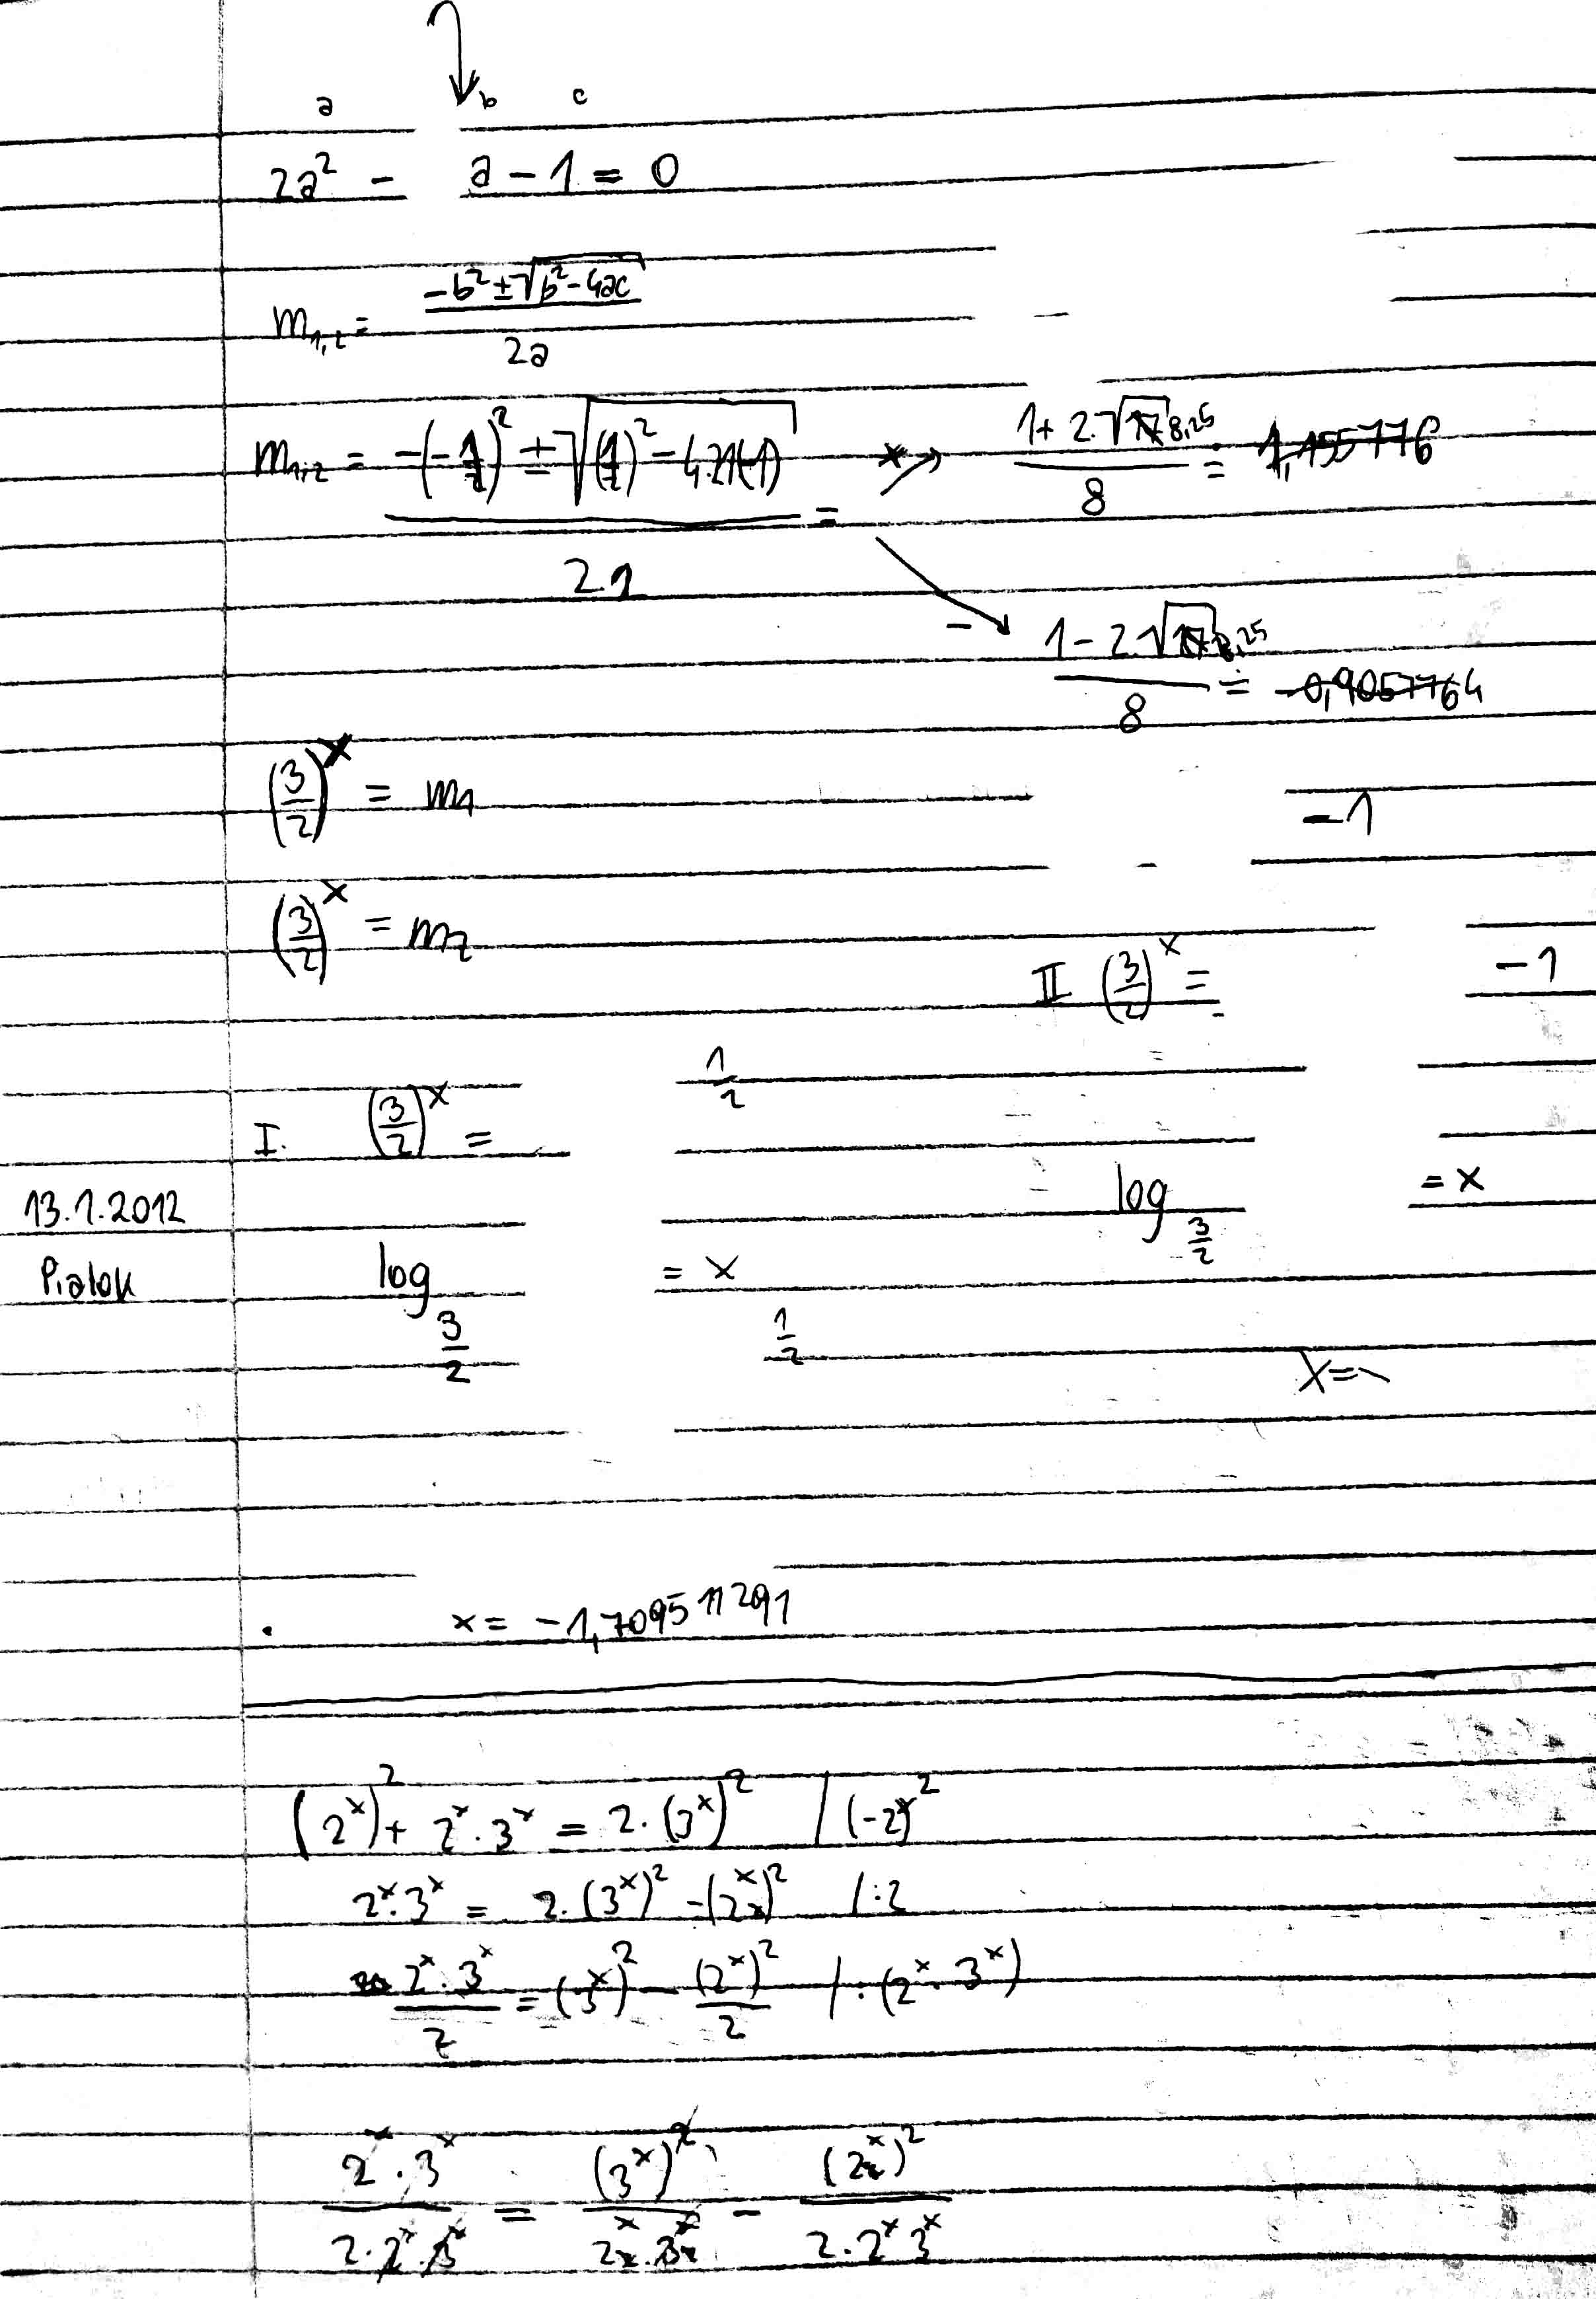 a b c
2a² - a - 1 = 0
m₁,₂ = (-b² ± √(b² - 4ac)) / 2a
m₁,₂ = / 2.1 =
1 + 2.√ 8,25 / 8 ≐ 1,155776
- 1 - 2.√ 8,25 / 8 ≐ -0,9057764
(3/2)^x = m₁
-1
(3/2)^x = m₂
II (3/2)^x = -1
I. (3/2)^x = 1/2
13.1.2012
log 3/2 = x
log 3/2 = x
1/2
x =
x = -1,709511291
(2^x)² + 2^x . 3^x = 2 . (3^x)² / (-2^x)²
2^x . 3^x = 2 . (3^x)² - (2^x)² / :2
2^x . 3^x / 2 = (3^x)² - (2^x)² / 2 / : (2^x . 3^x)
2^x . 3^x / 2 . 2^x . 3^x = (3^x)² / 2^x . 3^x - (2^x)² / 2 . 2^x 3^x